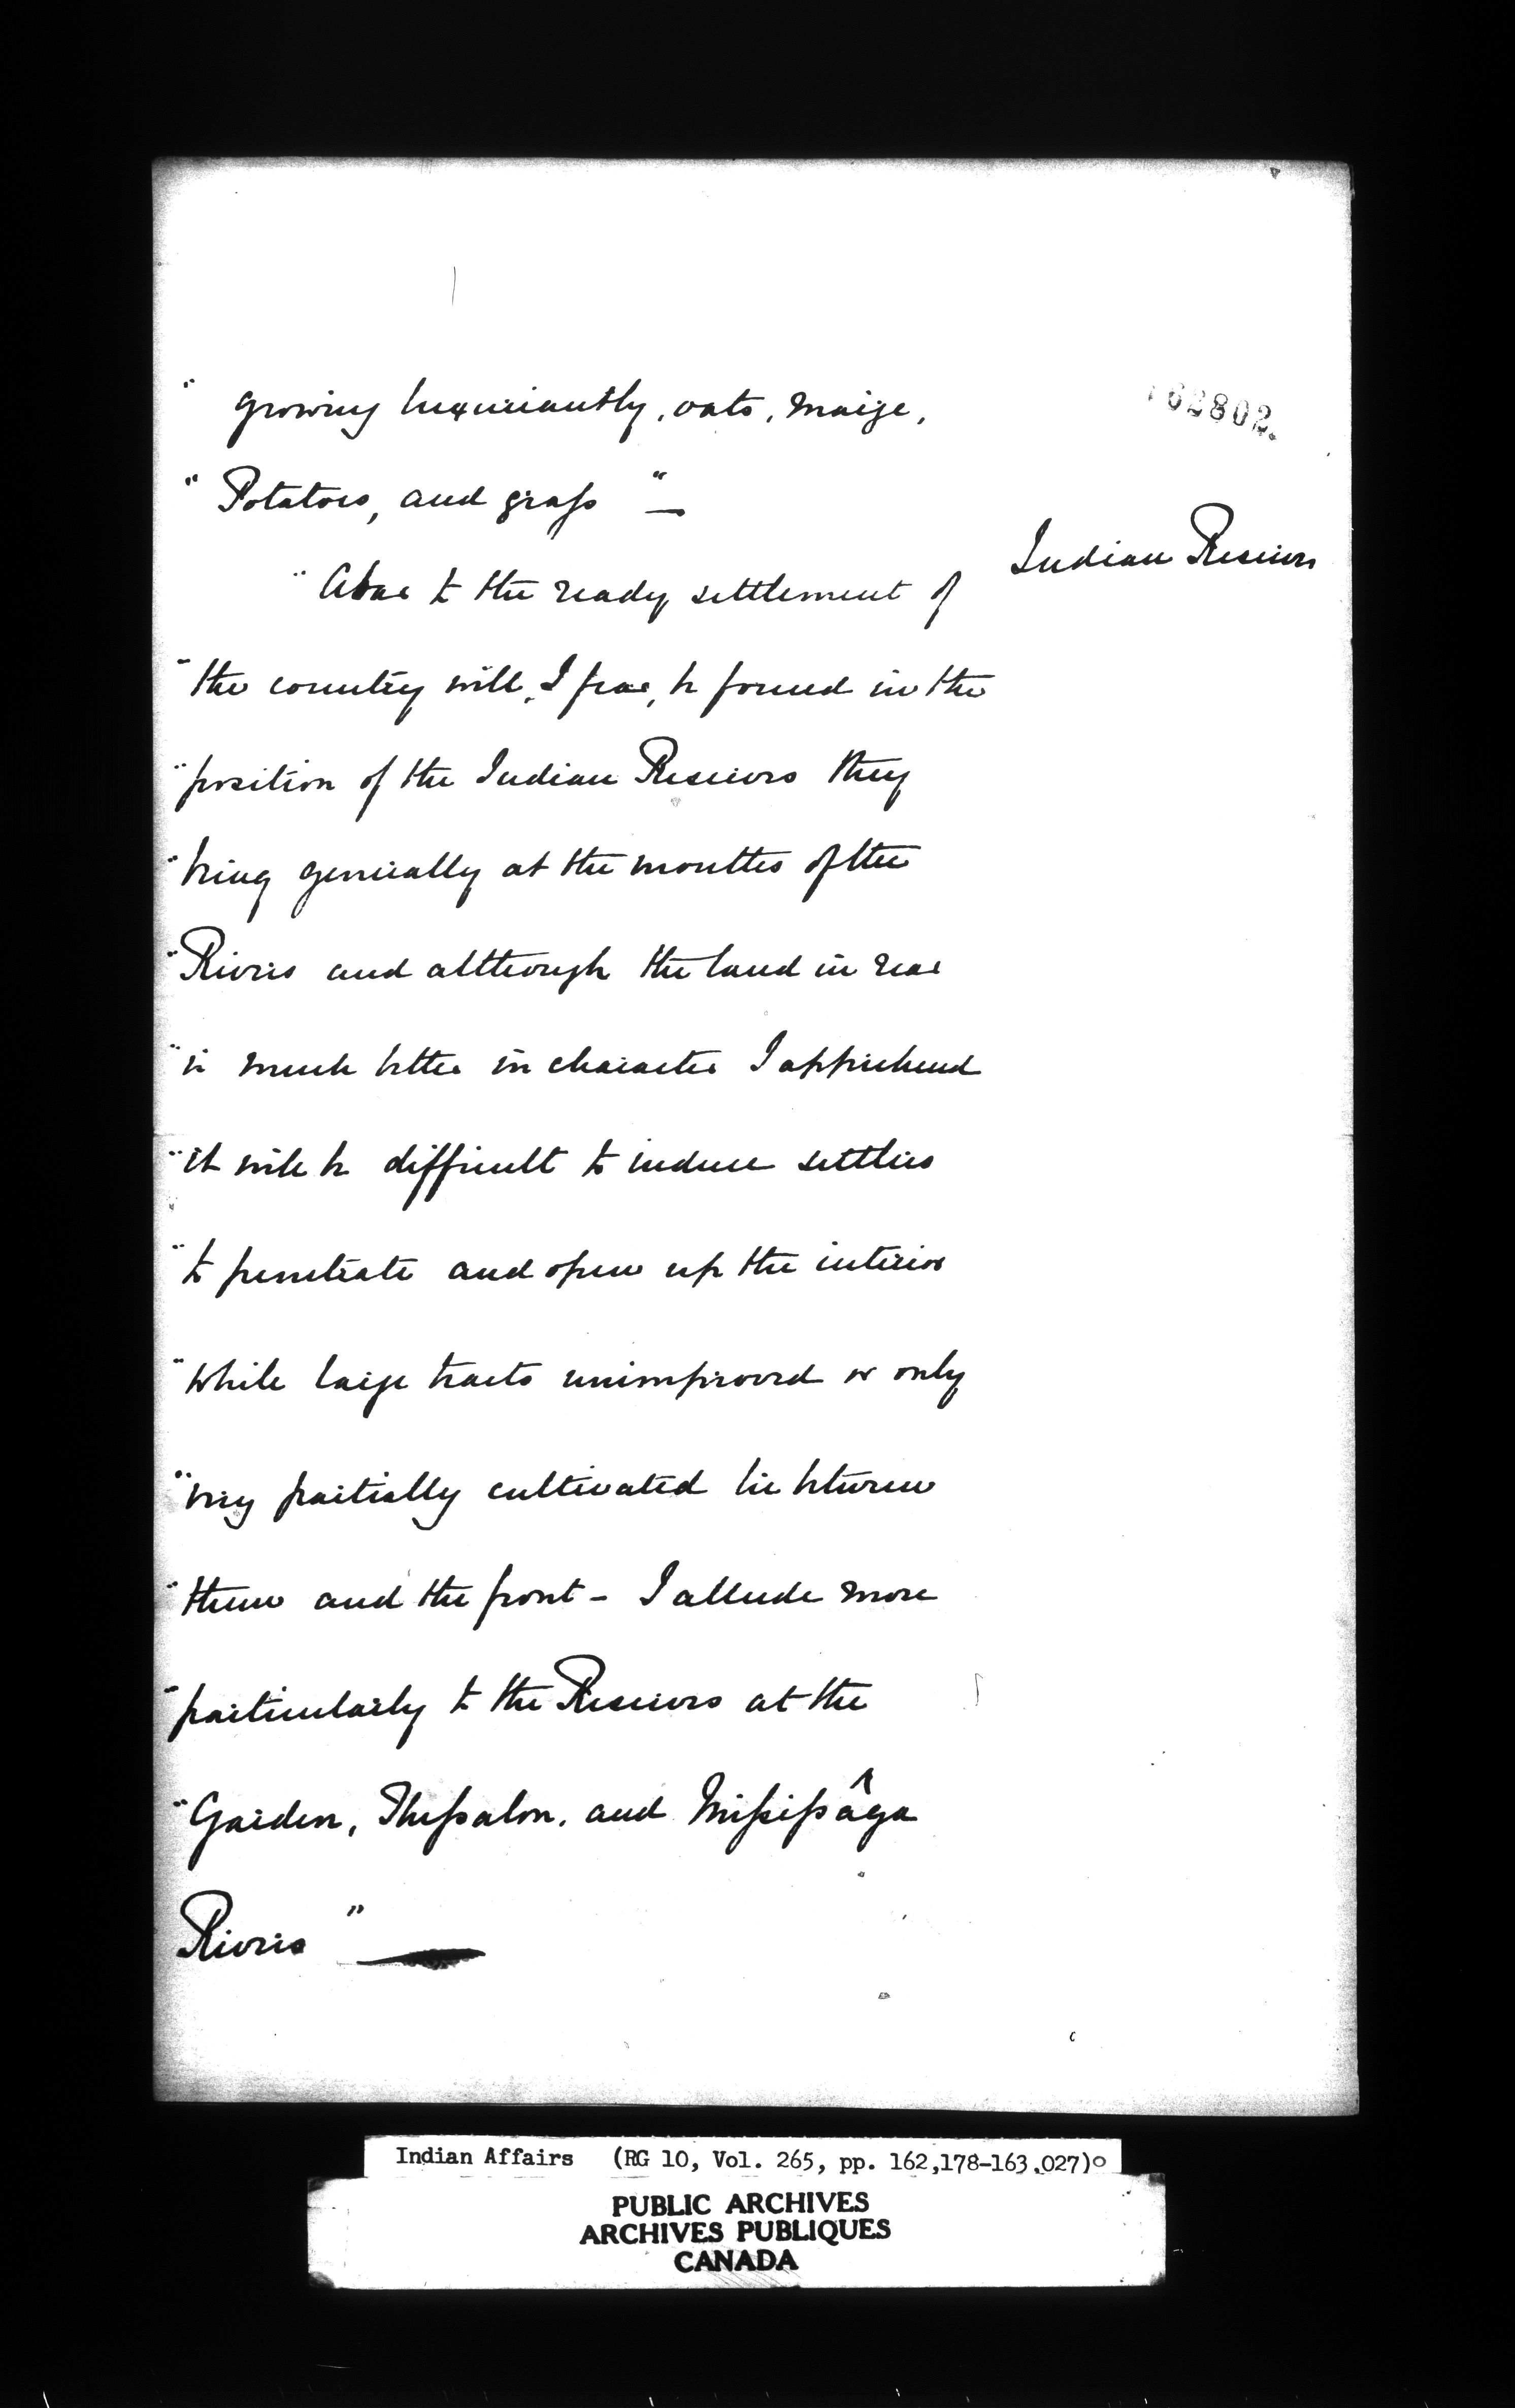 162802.
" growing luxuriantly, oats, maize,
" Potatoes, and grass " —
Indian Reserves
" A bar to the ready settlement of
" the country will, I fear, be found in the
" position of the Indian Reserves they
" being generally at the mouths of the
" Rivers and although the land in rear
" is much better in character I apprehend
" it will be difficult to induce settlers
" to penetrate and open up the interior
" while large tracts unimproved or only
" very partially cultivated lie between
" them and the front - I allude more
" particularly to the Reserves at the
" Garden, Thessalon, and Missisâga
Rivers " —
Indian Affairs (RG 10, Vol. 265, pp. 162,178-163,027)
PUBLIC ARCHIVES
ARCHIVES PUBLIQUES
CANADA